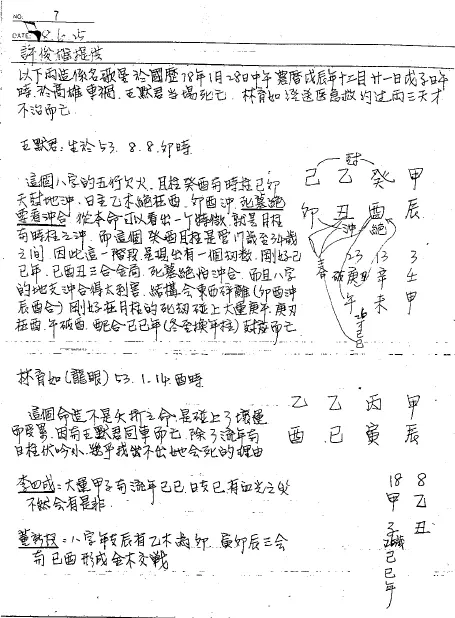 NO. 7
DATE
許俊楹提供
以下兩造係名歌星於國曆78年1月28日中午農曆戊辰年十二月廿一日戊子日午
時,於高雄車禍,王默君当場死亡,林育如經送医急救約过兩三天才
不治而亡
王默君:生於53.8.8.卯時
這個八字的五行欠火,且柱癸酉与時柱己卯
天尅地沖,日主乙木絕在酉,卯酉沖,死墓絕
要看沖合,從本命可以看出一个特徵,就是月柱
与時柱之沖,而這個癸酉月柱是管17歲至34歲
之间,因此這一階段是現出有一個切數,剛好己
巳年,巳酉丑三合会局,死墓絕怕沖合,而且八字
的地支沖合得太利害,結構会東西碎離(卯酉沖
辰酉合)剛好在月柱的死切碰上大運庚午,庚刃
在酉,午破酉,配合己巳年(冬至換年柱)尅

己乙癸甲
卯丑酉辰
沖
絕
23 13 3
庚辛壬
午未申
己巳
林育如(龍眼)53.1.14酉時
這個命造不是夭折之命,是碰上了壞運
即受累,因与王默君同車而亡,除了流年与
日柱伏吟外,幾乎找出不出她会死的理由
乙乙丙甲
酉巳寅辰
李四成:大運甲子与流年己巳,日支巳有血光之災
不然会有是非
18 8
甲乙
子丑
己巳年
八字年支辰有乙木為卯 寅卯辰三会
与巳酉形成金木交戰